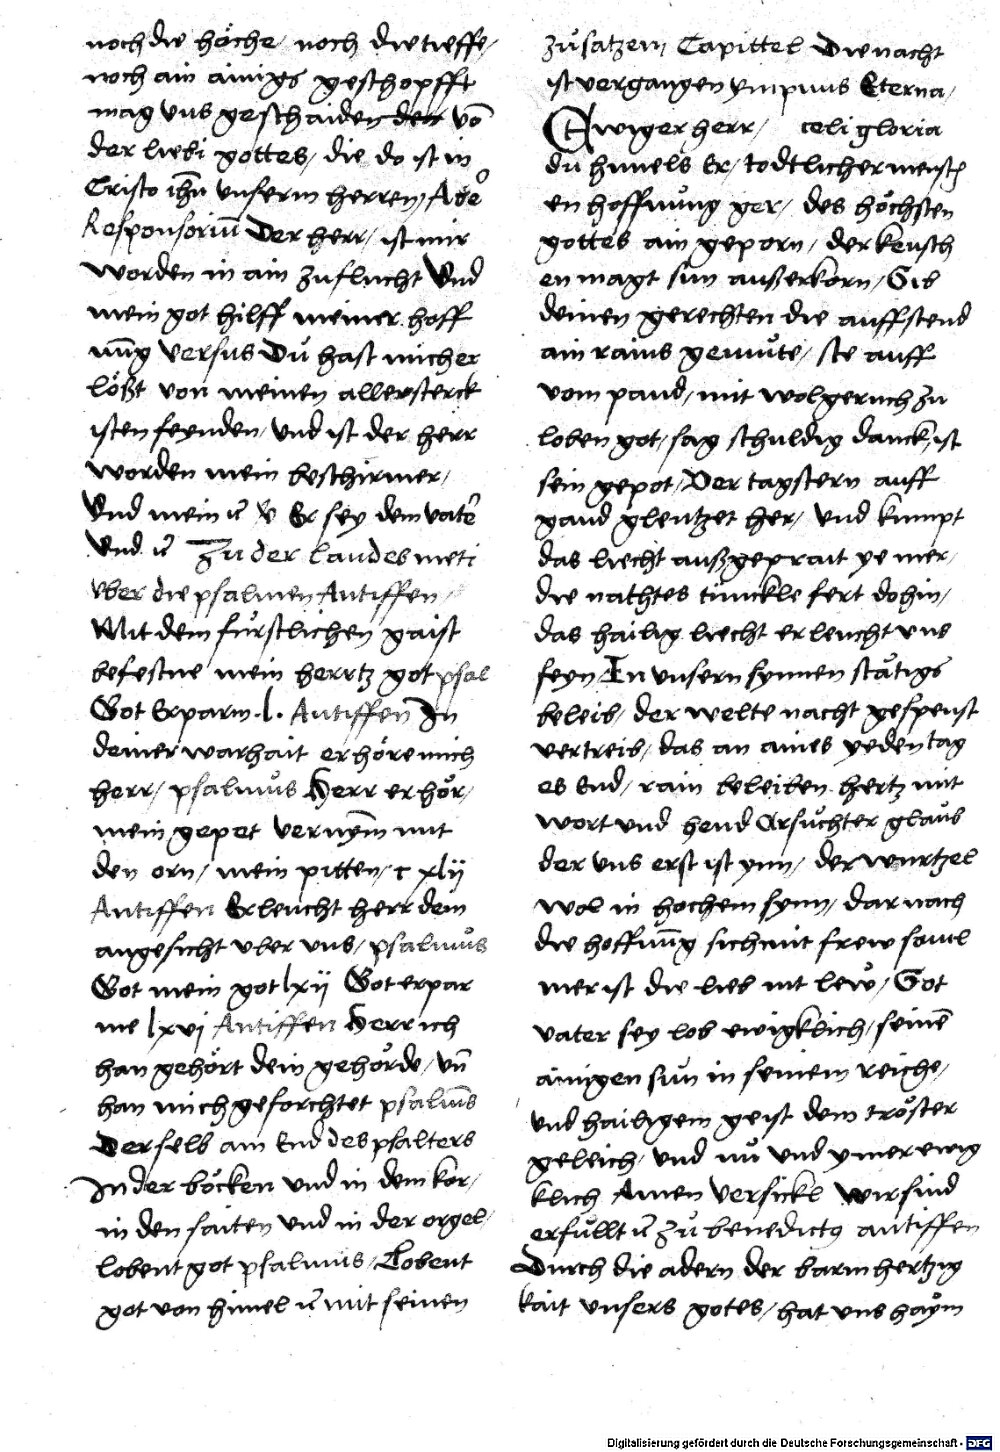 noch die höche / noch die tieffe /
noch ain ainigs geschopfft
mag vns geschaiden den võ
der liebi gottes / die do ist in
Cristo ihũ vnserm herren /
Responsoriũ Der herr / ist mir
worden in ain zuflucht Vnd
mein got hilff meiner hoff
nũg Versus Dů hast mich er
lößt von meinen allersterck
isten feynden / vnd ist der herr
worden mein beschirmer /
Vnd mein ꝛc̃ v̉ Er sey dem vatẽ
Vnd ꝛc̃ Zu der laudes meti
vber die psalmen Antiffen /
Mit dem fürstlichen gaist
befestne mein hertz got psal
Got Erparm .l. Antiffen In
deiner warhait erhöre mich
herr / psalmůs Herr erhör /
mein gepet vernym̃ mit
den orn / mein pitten / c xlij
Antiffen Erleucht herr dein
angesicht vber vns / psalmůs
Got mein got lxij Got erpar
me lxvj Antiffen Herr ich
han gehört dein gehörde / vñ
han mich geforchtet psalmũs
Der selb am End des psalters
In der böcken vnd in dem kor /
in den saiten vnd in der orgel /
lobent got psalmus / Lobent
got von himel ꝛc̃ mit seinen
zůsatzen / Capittel Die nacht
ist vergangen ympnus Eterna /
Ewiger herr / celi gloria
dů himels Er / todtlicher mensch
en hoffnůng ger / des höchsten
gottes ain geporn / der keusch
en magt sun außerkorn / Gib
deinen gerechten die auffstend
ain rains gemůte / ste auff
vom pand / mit wolgeruch zu
loben got / sag schuldig danck / ist
sein gepot / Der tagstern auff
gand glentzet her / vnd kumpt
das liecht außgeprait ye mer /
die nachtes tunckle fert dohin /
das hailig liecht erleucht vns
seyn / In vnsern synnen stätigs
beleib / der welte nacht gespenst
vertreib / das an aines yeden tag
es End / rain beleiben hertz mit
wort vnd hend Ersůchter glaub
der vns erst ist ynn / der wurtzel
wol in hochem synn / dar nach
die hoffnũg sich mit frew saml
mer ist die lieb mt lew / Got
vater sey lob ewigklich / seinẽ
ainigen sun in seinem reiche /
vnd hailigem geist dem tröster
geleich / vnd nů vnd ymer ewig
klich Amen Versickl Wir sind
erfüllt ꝛc̃ zů benedictꝰ antiffen
Durch die adern der barmhertzig
kait vnsers gotes / hat vns haym
Digitalisierung gefördert durch die Deutsche Forschungsgemeinschaft - DFG